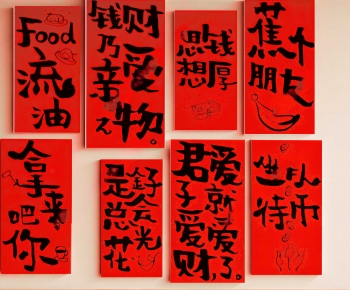 Food
流
油
钱财
乃
亲爱
之物。
思想
钱厚
蕉个
朋友
拿来
吧你
是金子
总会
花光
君子爱财,
爱就爱了。
坐以
待币